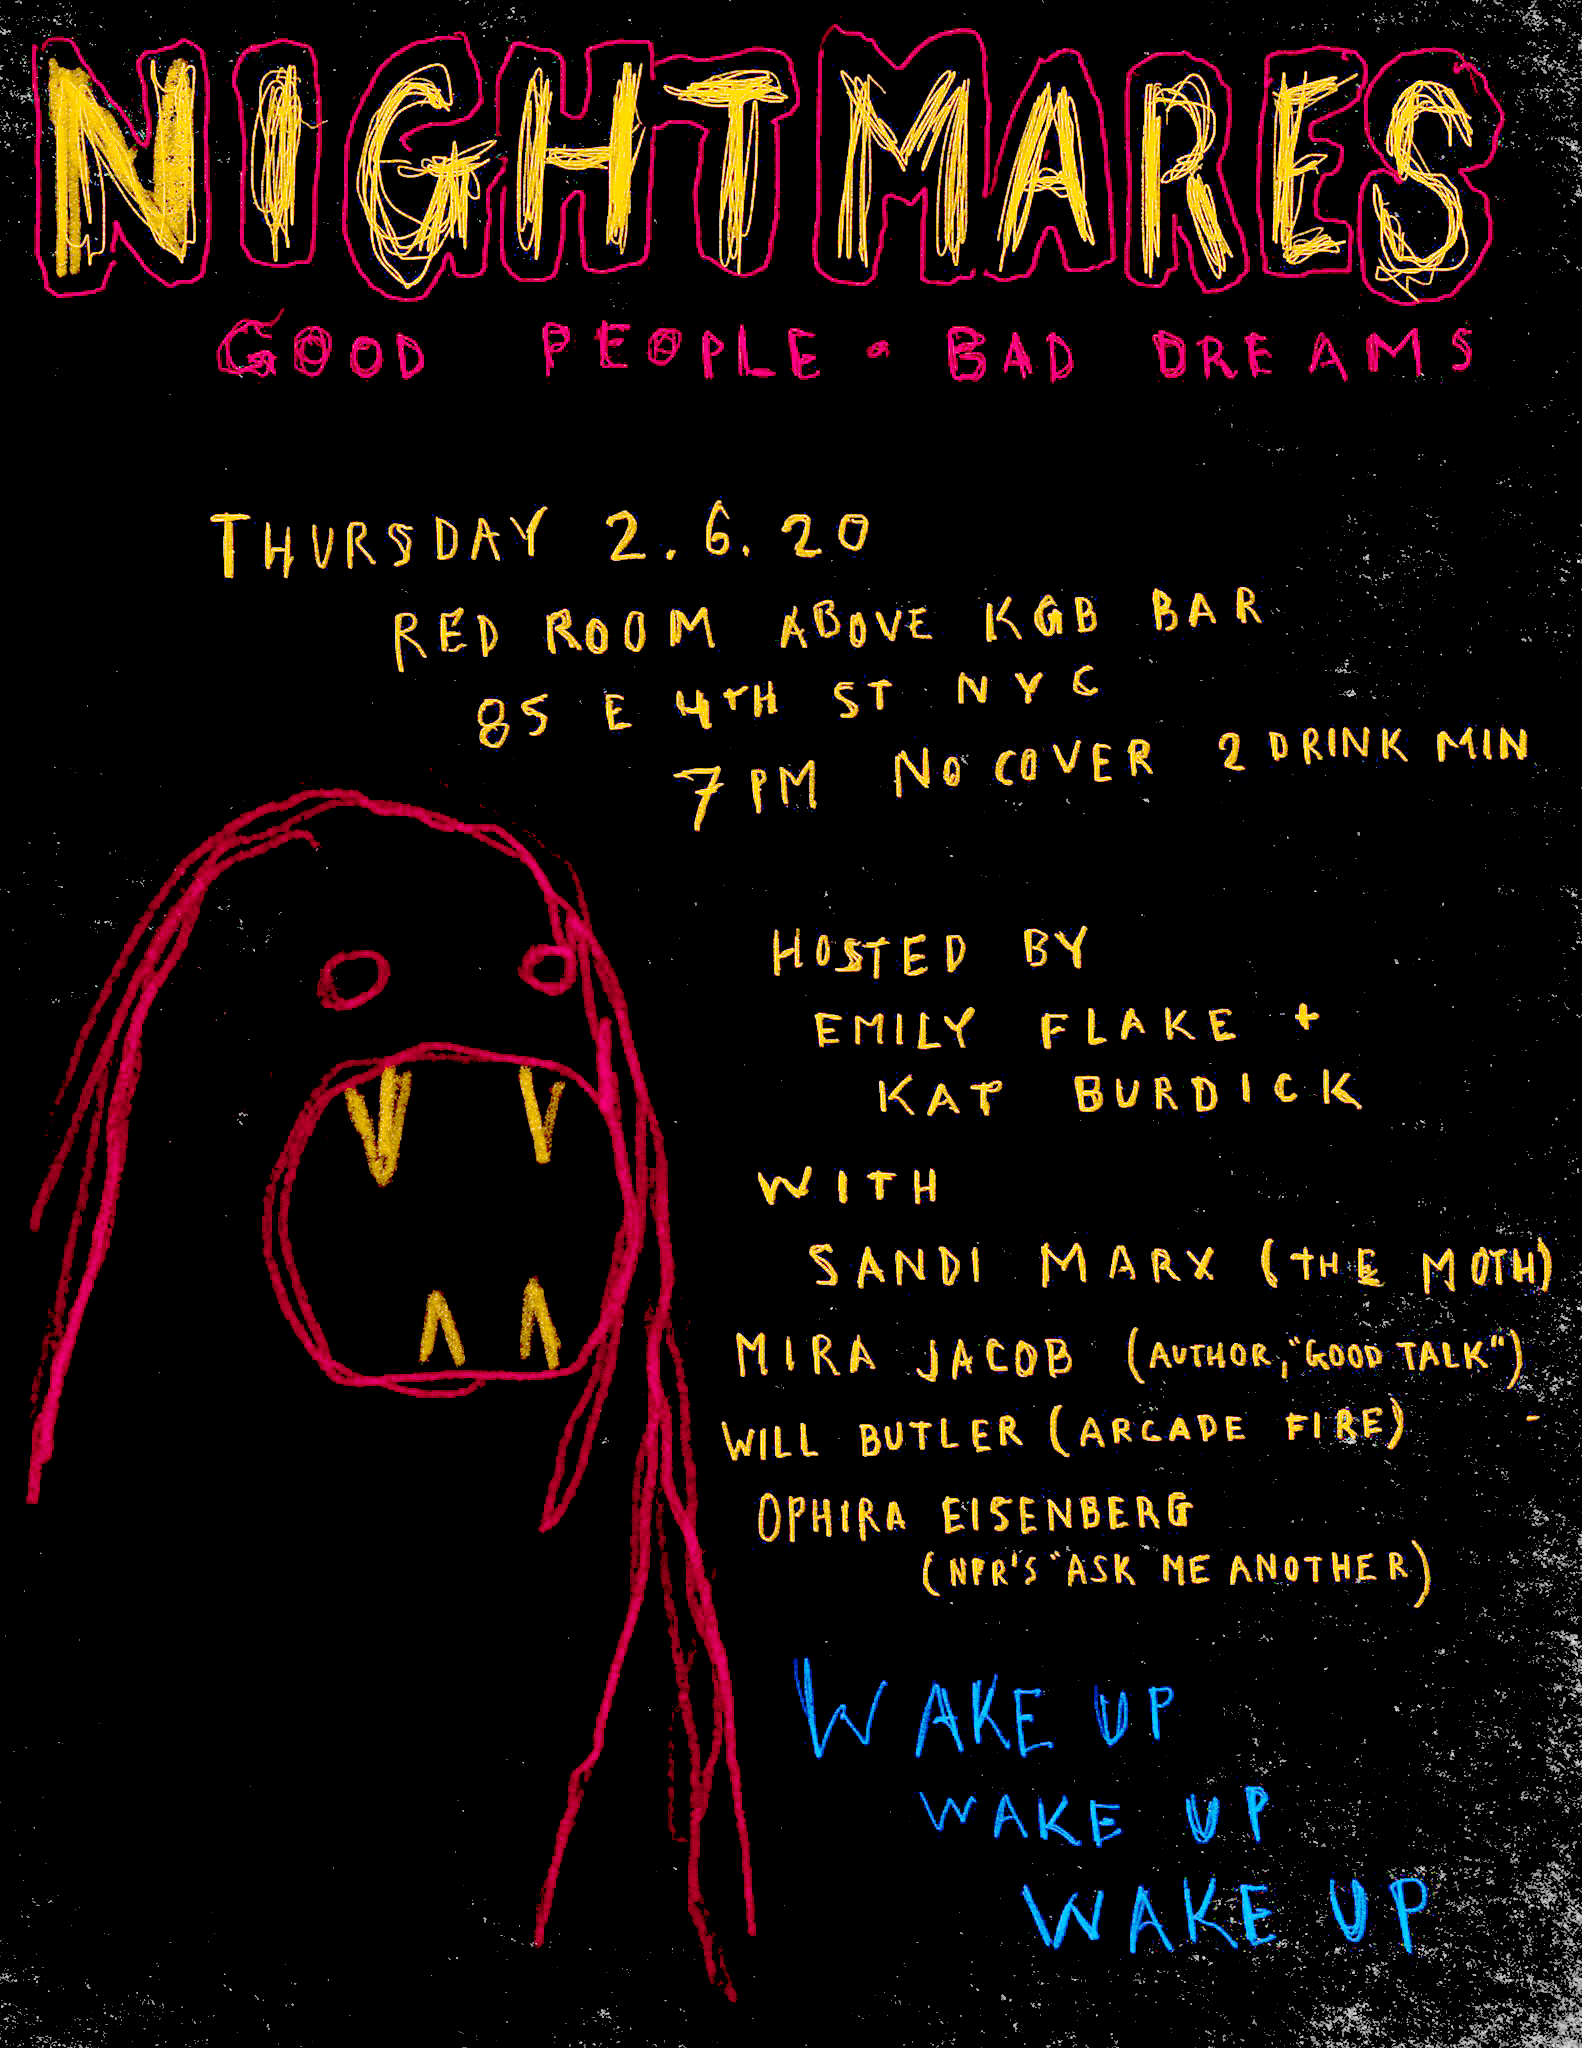 NIGHTMARES
GOOD PEOPLE • BAD DREAMS
THURSDAY 2.6.20
RED ROOM ABOVE KGB BAR
85 E 4TH ST NYC
7 PM NO COVER 2 DRINK MIN
HOSTED BY
EMILY FLAKE +
KAT BURDICK
WITH
SANDI MARX (THE MOTH)
MIRA JACOB (AUTHOR, "GOOD TALK")
WILL BUTLER (ARCADE FIRE)
OPHIRA EISENBERG
(NPR'S "ASK ME ANOTHER)
WAKE UP
WAKE UP
WAKE UP